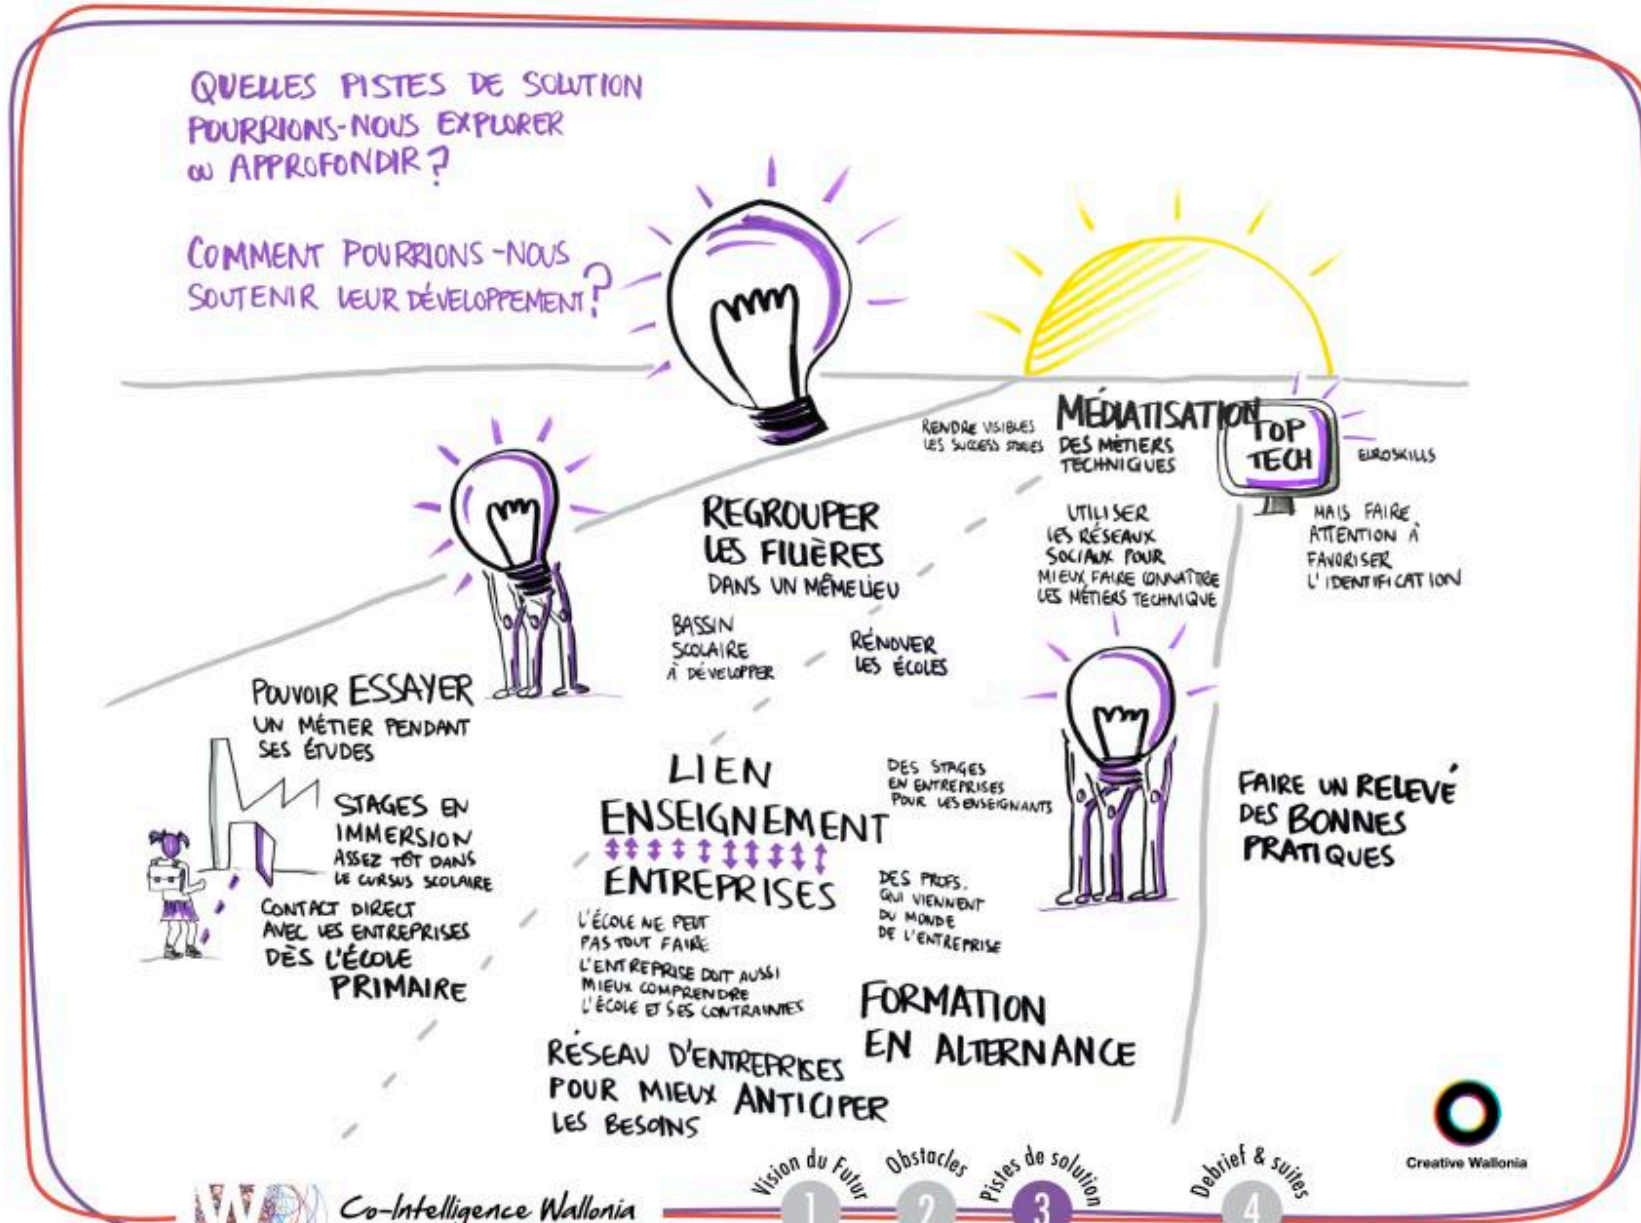 QUELLES PISTES DE SOLUTION
POURRIONS-NOUS EXPLORER
OU APPROFONDIR ?
COMMENT POURRIONS-NOUS
SOUTENIR LEUR DÉVELOPPEMENT ?
RENDRE VISIBLES
LES SUCCESS STORIES
MÉDIATISATION
DES MÉTIERS
TECHNIQUES
TOP
TECH
EUROSKILLS
MAIS FAIRE
ATTENTION À
FAVORISER
L'IDENTIFICATION
UTILISER
LES RÉSEAUX
SOCIAUX POUR
MIEUX FAIRE CONNAÎTRE
LES MÉTIERS TECHNIQUE
REGROUPER
LES FILIÈRES
DANS UN MÊME LIEU
BASSIN
SCOLAIRE
À DÉVELOPPER
RÉNOVER
LES ÉCOLES
POUVOIR ESSAYER
UN MÉTIER PENDANT
SES ÉTUDES
STAGES EN
IMMERSION
ASSEZ TÔT DANS
LE CURSUS SCOLAIRE
CONTACT DIRECT
AVEC LES ENTREPRISES
DÈS L'ÉCOLE
PRIMAIRE
LIEN
ENSEIGNEMENT
ENTREPRISES
L'ÉCOLE NE PEUT
PAS TOUT FAIRE
L'ENTREPRISE DOIT AUSSI
MIEUX COMPRENDRE
L'ÉCOLE ET SES CONTRAINTES
DES STAGES
EN ENTREPRISES
POUR LES ENSEIGNANTS
DES PROFS.
QUI VIENNENT
DU MONDE
DE L'ENTREPRISE
FAIRE UN RELEVÉ
DES BONNES
PRATIQUES
FORMATION
EN ALTERNANCE
RÉSEAU D'ENTREPRISES
POUR MIEUX ANTICIPER
LES BESOINS
Creative Wallonia
Co-Intelligence Wallonia
Vision du Futur
1
Obstacles
2
Pistes de solution
3
Debrief & suites
4